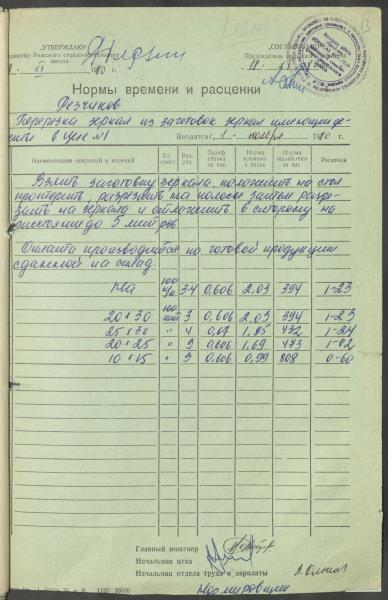 „УТВЕРЖДАЮ"
„СОГЛАСОВАНО"
Директор Рижского стекло-
завода
Председатель
11. XI 1980 г.
Нормы времени и расценки
Резчиков
Порезка зеркал из заготовок зеркал имеющиде-
в цехе №1
Вводятся с 1 - ноября 1980 г.
Наименование операций и изделий
Ед. измер.
Раз-ряд
Тариф. ставка за час.
Норма времени в часах
Норма выработки за час
Расценок
Взять заготовку зеркала, положить на стол
протереть, разрезать на полосы затем разре-
зать на зеркала и отложить в сторону на
расстояние до 5 метров
Оплата производится по готовой продукции
сданной на склад.
100 шт 3-4 0,606 2,03 394 1-23
20 x 30 100 шт 3 0,606 2,03 394 1-23
25 x 30 " 4 0,67 1,85 432 1-24
20 x 25 " 3 0,606 1,69 473 1-02
10 x 15 " 3 0,606 0,99 808 0-60
Главный инженер
Начальник цеха
Начальник отдела труда и зарплаты
Нормировщик